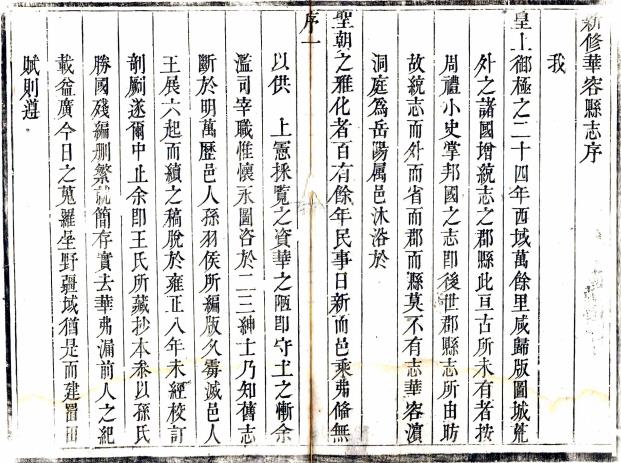 新修華容縣志序
我
皇上御極之二十四年西域萬餘里咸歸版圖城
外之諸國增統志之郡縣此亘古所未有者按
周禮小史掌邦國之志即後世郡縣志所由昉
故統志而外而省而郡而縣莫不有志華容濵
洞庭為岳陽属邑沐浴於
聖朝之雅化者百有餘年民事日新而邑乘弗脩無
序一
以供 上憲採覧之資華之陋即守土之慚余
濫司宰職惟懷永圖咨於二三紳士乃知舊志
斷於明萬歷邑人孫羽侯所編版久雾滅邑人
王展六起而續之稿脫於雍正八年未經校訂
剞劂遂爾中止余即王氏所藏抄本叅以孫氏
勝國殘編刪繁就簡存實去華弗漏前人之紀
載益廣今日之蒐羅星野疆域猶是而建置田
賦則遵